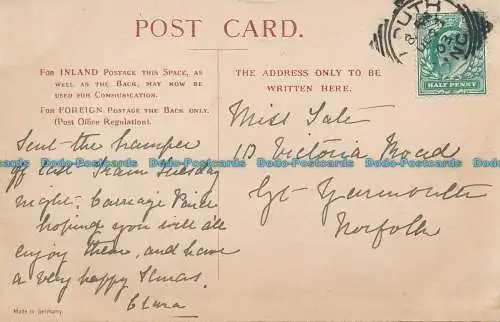 POST CARD.
For INLAND Postage this Space, as
well as the Back, may now be
used for Communication.
For FOREIGN Postage the Back only.
(Post Office Regulation).
THE ADDRESS ONLY TO BE
WRITTEN HERE.
HALF PENNY
Sent the hamper
off last train Tuesday
night. Carriage Paid
hoping you will all
enjoy them, and have
a very happy Xmas.
Clara
Miss
Victoria Road
Gt Yarmouth
Norfolk
Made in Germany.